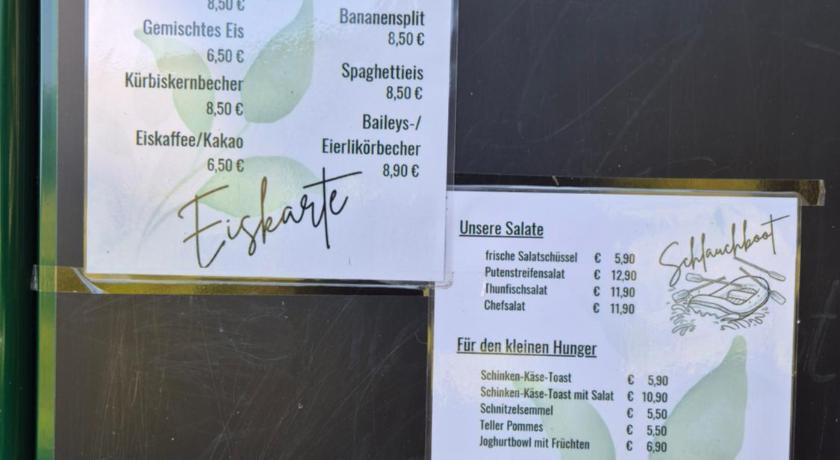 8,50 €
Gemischtes Eis
6,50 €
Kürbiskernbecher
8,50 €
Eiskaffee/Kakao
6,50 €
Bananensplit
8,50 €
Spaghettieis
8,50 €
Baileys-/
Eierlikörbecher
8,90 €
Eiskarte
Schlauchboot
Unsere Salate
frische Salatschüssel € 5,90
Putenstreifensalat € 12,90
Thunfischsalat € 11,90
Chefsalat € 11,90
Für den kleinen Hunger
Schinken-Käse-Toast € 5,90
Schinken-Käse-Toast mit Salat € 10,90
Schnitzelsemmel € 5,50
Teller Pommes € 5,50
Joghurtbowl mit Früchten € 6,90